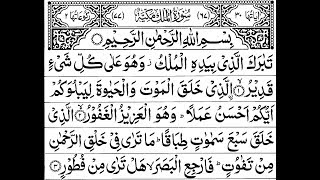 اٰيَاتُهَا ٣٠ (٦٧) سُوْرَةُ الْمُلْكِ مَكِّيَّةٌ (٧٧) رُكُوْعَاتُهَا ٢
بِسْمِ اللّٰهِ الرَّحْمٰنِ الرَّحِيْمِ
تَبٰرَكَ الَّذِيْ بِيَدِهِ الْمُلْكُ ؗ وَهُوَ عَلٰى كُلِّ شَيْءٍ
قَدِيْرُ ۙ﴿١﴾ اِۨلَّذِيْ خَلَقَ الْمَوْتَ وَالْحَيٰوةَ لِيَبْلُوَكُمْ
اَيُّكُمْ اَحْسَنُ عَمَلًا ؕ وَهُوَ الْعَزِيْزُ الْغَفُوْرُ ۙ﴿٢﴾ الَّذِيْ
خَلَقَ سَبْعَ سَمٰوٰتٍ طِبَاقًا ؕ مَا تَرٰى فِيْ خَلْقِ الرَّحْمٰنِ
مِنْ تَفٰوُتٍ ؕ فَارْجِعِ الْبَصَرَ ۙ هَلْ تَرٰى مِنْ فُطُوْرٍ ﴿٣﴾